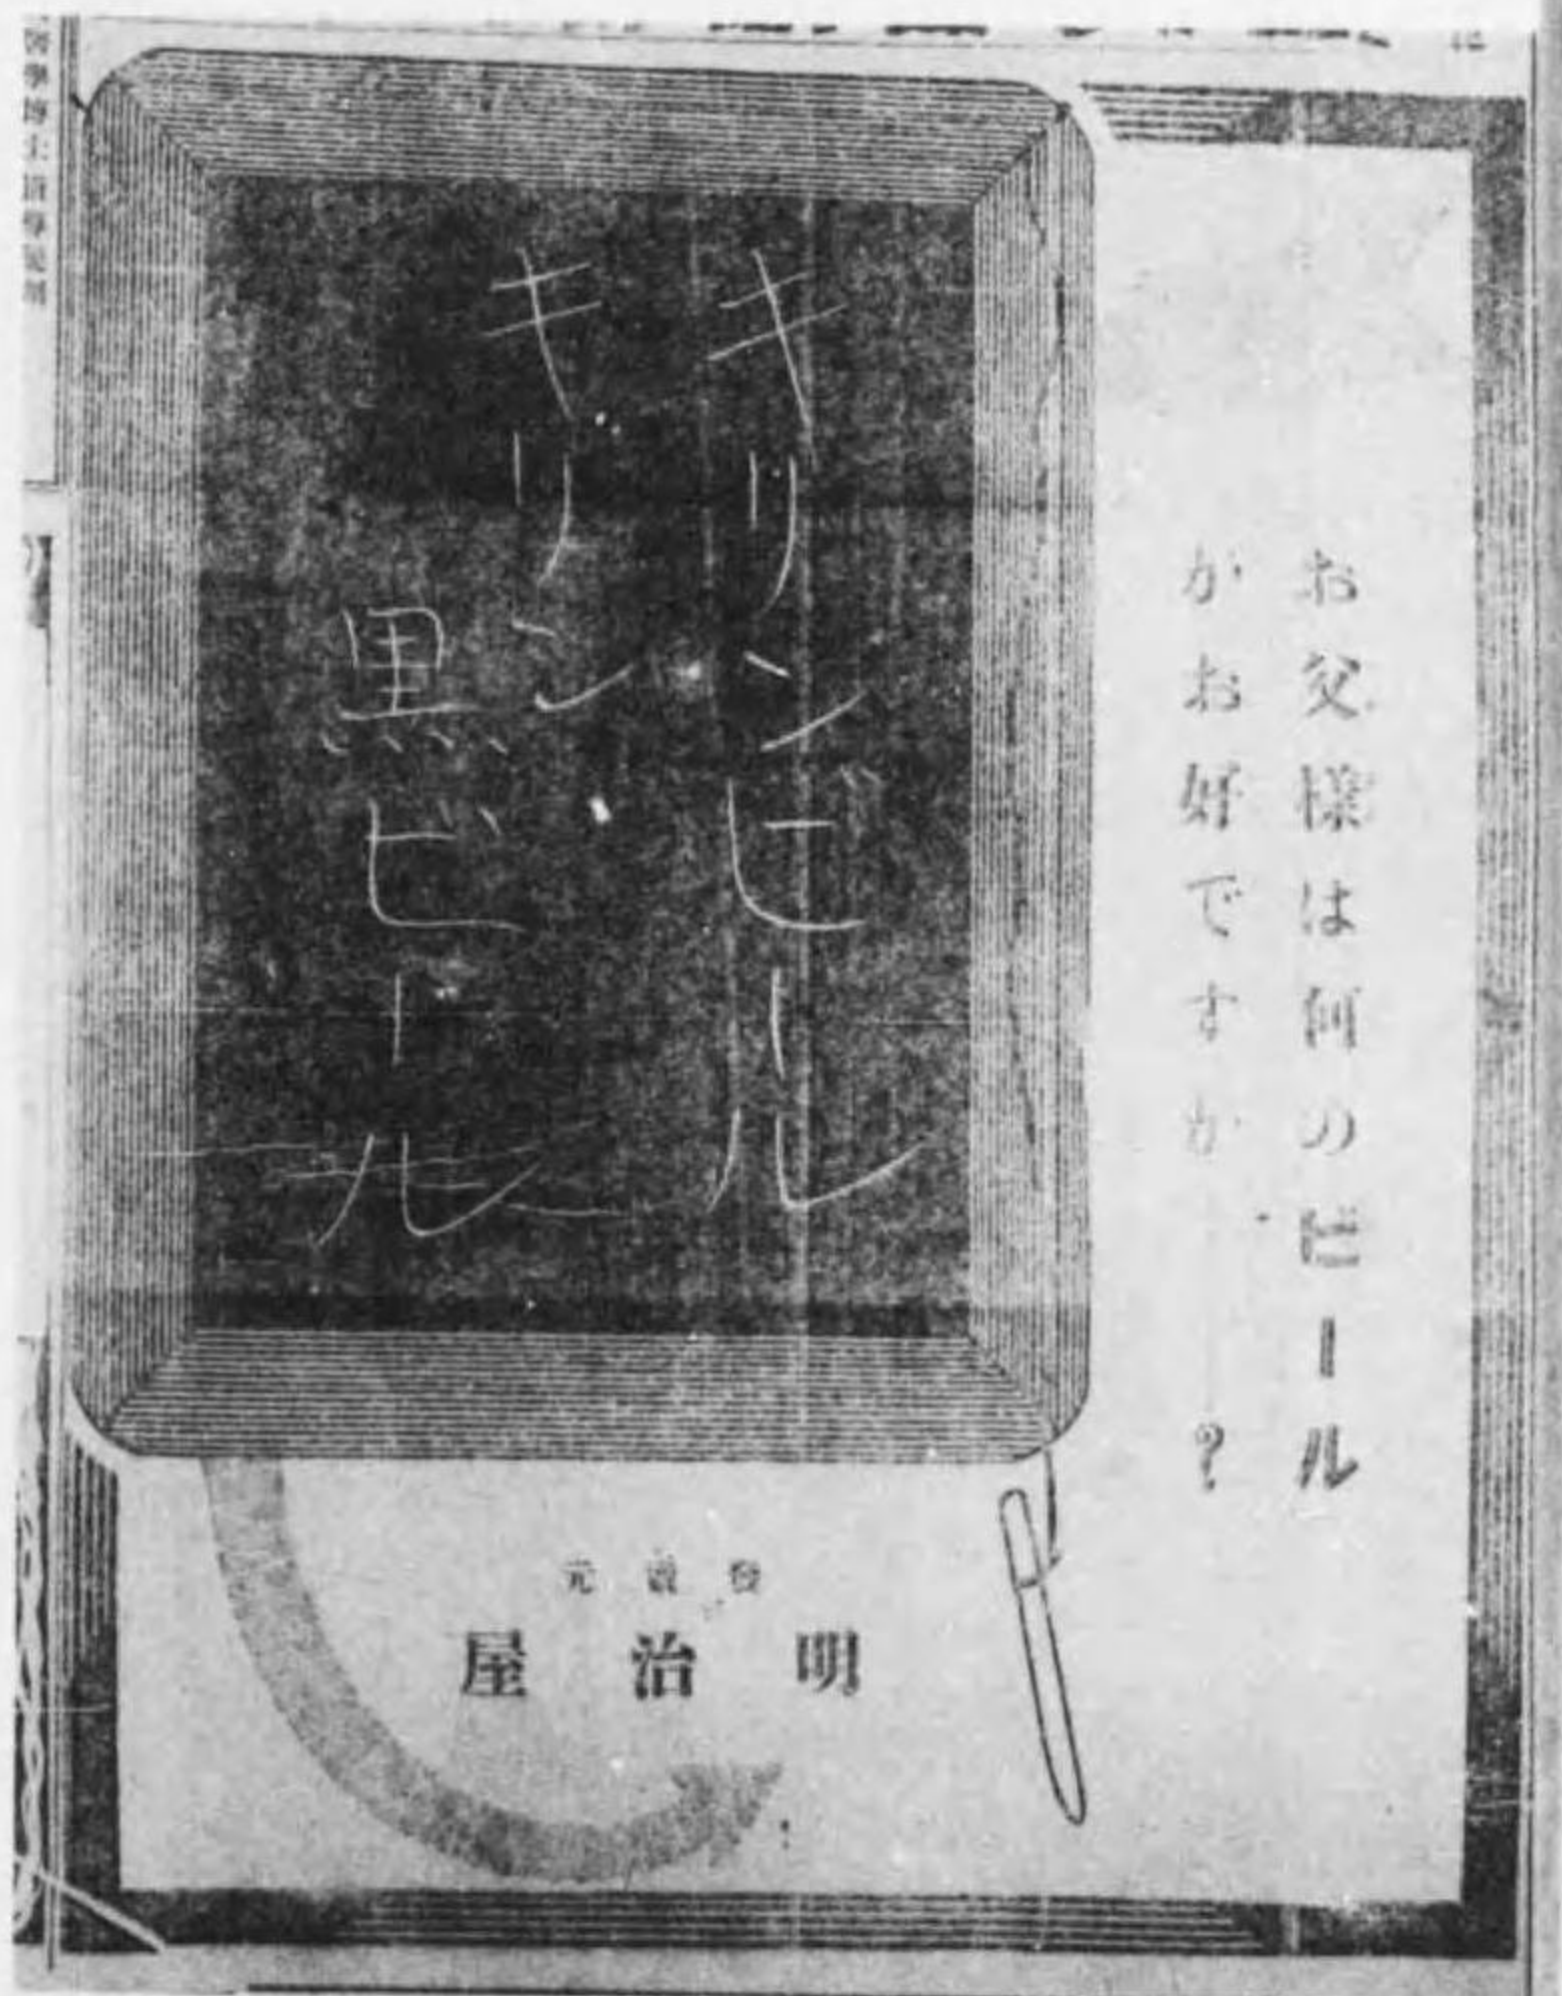 お父様は何のビール
がお好ですか?
キリンビール
キリン
黒ビール
發賣元
明治屋